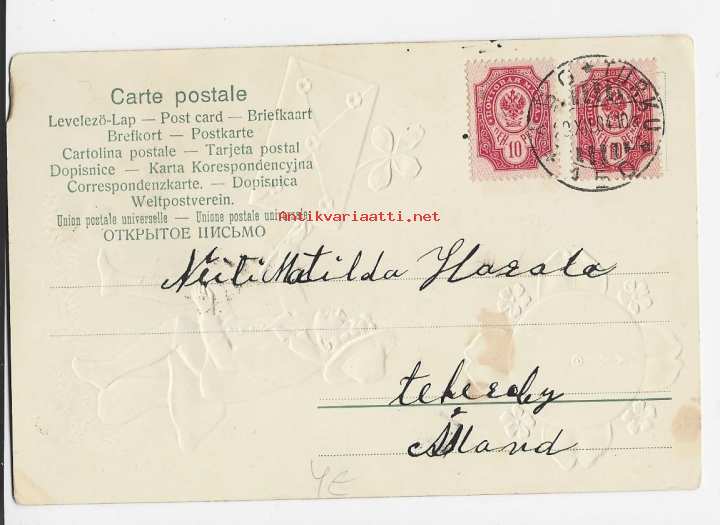 Carte postale
Levelező-Lap — Post card — Briefkaart
Brefkort — Postkarte
Cartolina postale — Tarjeta postal
Dopisnice — Karta Korespondencyjna
Correspondenzkarte. — Dopisnica
Weltpostverein.
Union postale universelle — Unione postale universale
ОТКРЫТОЕ ПИСЬМО
Antikvariaatti.net
10
10
TURKU
Neiti Matilda
Åland
4€